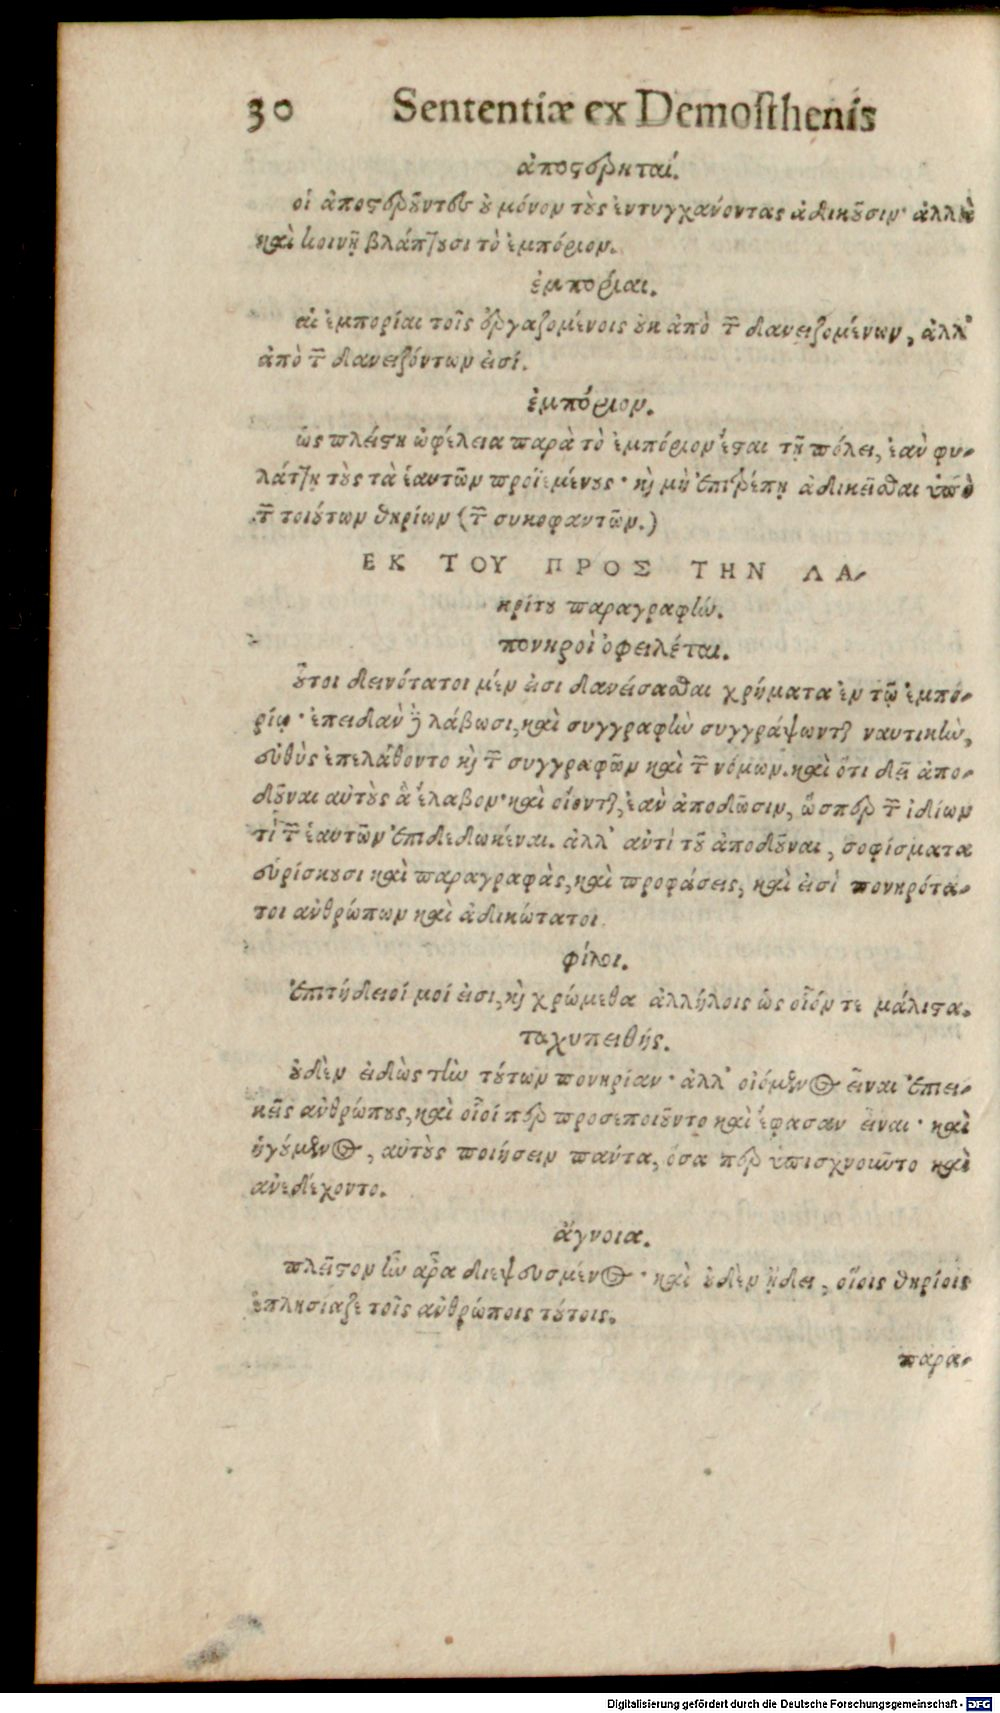 30 Sententiæ ex Demosthenis
ἀποστερηταί.
οἱ ἀποστεροῦντες οὐ μόνον τοὺς ἐντυγχάνοντας ἀδικοῦσιν· ἀλλὰ
καὶ κοινῇ βλάπτουσι τὸ ἐμπόριον.
ἐμπορίαι.
αἱ ἐμπορίαι τοῖς ἐργαζομένοις οὐκ ἀπὸ τῶν δανειζομένων, ἀλλ'
ἀπὸ τῶν δανειζόντων εἰσί.
ἐμπόριον.
ὡς πλείστη ὠφέλεια παρὰ τὸ ἐμπόριον ἔσται τῇ πόλει, ἐὰν φυ-
λάττῃ τοὺς τὰ ἑαυτῶν προϊεμένους· καὶ μὴ ἐπιτρέπῃ ἀδικεῖσθαι ὑπὸ
τῶν τοιούτων θηρίων (τῶν συκοφαντῶν.)
ΕΚ ΤΟΥ ΠΡΟΣ ΤΗΝ ΛΑ-
κρίτου παραγραφήν.
πονηροὶ ὀφειλέται.
οὗτοι δεινότατοι μέν εἰσι δανείσασθαι χρήματα ἐν τῷ ἐμπο-
ρίῳ· ἐπειδὰν δὲ λάβωσι, καὶ συγγραφὴν συγγράψωνται ναυτικὴν,
εὐθὺς ἐπελάθοντο καὶ τῶν συγγραφῶν καὶ τῶν νόμων. καὶ ὅτι δεῖ ἀπο-
δοῦναι αὐτοὺς ἃ ἔλαβον· καὶ οἴονται, ἐὰν ἀποδῶσιν, ὥσπερ τῶν ἰδίων
τὶ τῶν ἑαυτῶν ἐπιδεδωκέναι. ἀλλ' ἀντὶ τοῦ ἀποδοῦναι, σοφίσματα
εὑρίσκουσι καὶ παραγραφὰς, καὶ προφάσεις, καὶ εἰσὶ πονηρότα-
τοι ἀνθρώπων καὶ ἀδικώτατοι.
φίλοι.
ἐπιτήδειοί μοί εἰσι, καὶ χρώμεθα ἀλλήλοις ὡς οἷόν τε μάλιστα.
ταχυπειθής.
οὐδὲν εἰδὼς τὴν τούτων πονηρίαν· ἀλλ' οἰόμενος εἶναι ἐπιει-
κεῖς ἀνθρώπους, καὶ οἷοί περ προσεποιοῦντο καὶ ἔφασαν εἶναι· καὶ
ἡγούμενος, αὐτοὺς ποιήσειν πάντα, ὅσα περ ὑπισχνοῦντο καὶ
ἀνεδέχοντο.
ἄγνοια.
πλεῖστον ἦν ἄρα διεψευσμένος· καὶ οὐδὲν ᾔδει, οἵοις θηρίοις
ἐπλησίαζε τοῖς ἀνθρώποις τούτοις.
παρα-
Digitalisierung gefördert durch die Deutsche Forschungsgemeinschaft - DFG